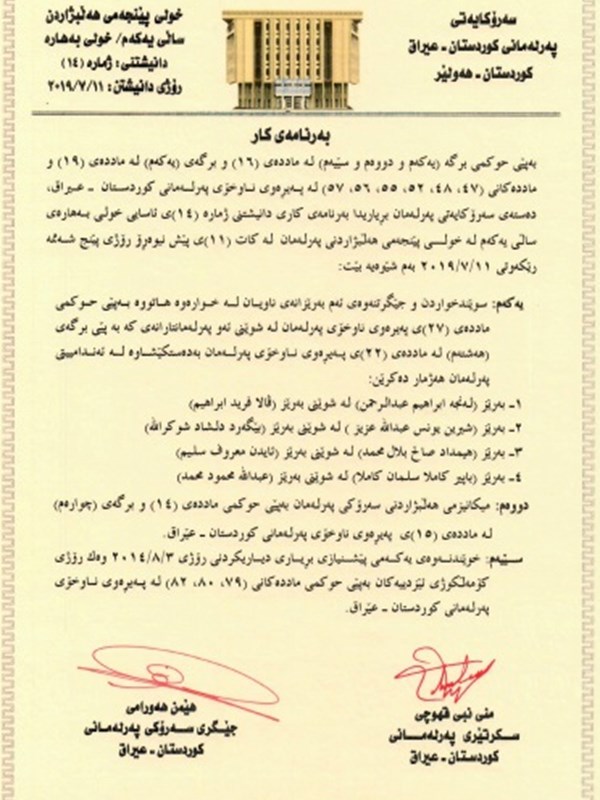 سەرۆکایەتی
پەرلەمانی کوردستان - عیراق
کوردستان - هەولێر
خولی پێنجەمی هەڵبژاردن
ساڵی یەکەم/ خولی بەهارە
دانیشتنی: ژمارە (١٤)
رۆژی دانیشتن: ٢٠١٩/٧/١١
بەرنامەی کار
بەپێی حوکمی برگە (یەکەم و دووەم و سێیەم) لە ماددەی (١٦) و برگەی (یەکەم) لە ماددەی (١٩) و
ماددەکانی (٤٧، ٤٨، ٥٢، ٥٥، ٥٦، ٥٧) لە پەیرەوی ناوخۆی پەرلەمانی کوردستان - عیراق،
دەستەی سەرۆکایەتی پەرلەمان بڕیاریدا بەرنامەی کاری دانیشتنی ژمارە (١٤)ی ئاسایی خولی بەهارەی
ساڵی یەکەم لە خولی پێنجەمی هەڵبژاردنی پەرلەمان لە کات (١١)ی پێش نیوەڕۆ رۆژی پێنج شەممە
رێکەوتی ٢٠١٩/٧/١١ بەم شێوەیە بێت:
یەکەم: سوێندخواردن و جێگرتنەوەی ئەم بەرێزانەی ناویان لە خوارەوە هاتووە بەپێی حوکمی
ماددەی (٢٧)ی پەیرەوی ناوخۆی پەرلەمان لە شوێنی ئەو پەرلەمانتارانەی کە بە پێی برگەی
(هەشتەم) لە ماددەی (٢٢)ی پەیرەوی ناوخۆی پەرلەمان بەدەستکێشاوە لە ئەندامییتی
پەرلەمان هەژمار دەکرێن:
١- بەرێز (لەنجە ابراهیم عبدالرحمن) لە شوێنی بەرێز (ڤالا فرید ابراهیم)
٢- بەرێز (شیرین یونس عبدالله عزیز ) لە شوێنی بەرێز (بێگەرد دلشاد شوکرالله)
٣- بەرێز (هیمداد صالح بلال محمد) لە شوێنی بەرێز (ئایدن معروف سلیم)
٤- بەرێز (باپیر کاملا سلمان کاملا) لە شوێنی بەرێز (عبدالله محمود محمد)
دووەم: میکانیزمی هەڵبژاردنی سەرۆکی پەرلەمان بەپێی حوکمی ماددەی (١٤) و برگەی (چوارەم)
لە ماددەی (١٥)ی پەیرەوی ناوخۆی پەرلەمانی کوردستان - عێراق.
سێیەم: خوێندنەوەی یەکەمی پێشنیازی بڕیاری دیاریکردنی رۆژی ٢٠١٤/٨/٣ وەک رۆژی
کۆمەڵکوژی ئێزدییەکان بەپێی حوکمی ماددەکانی (٧٩، ٨٠، ٨٢) لە پەیرەوی ناوخۆی
پەرلەمانی کوردستان - عێراق.
منی نبی قهوچی
سکرتێری پەرلەمانی
کوردستان - عیراق
هێمن هەورامی
جێگری سەرۆکی پەرلەمانی
کوردستان - عیراق